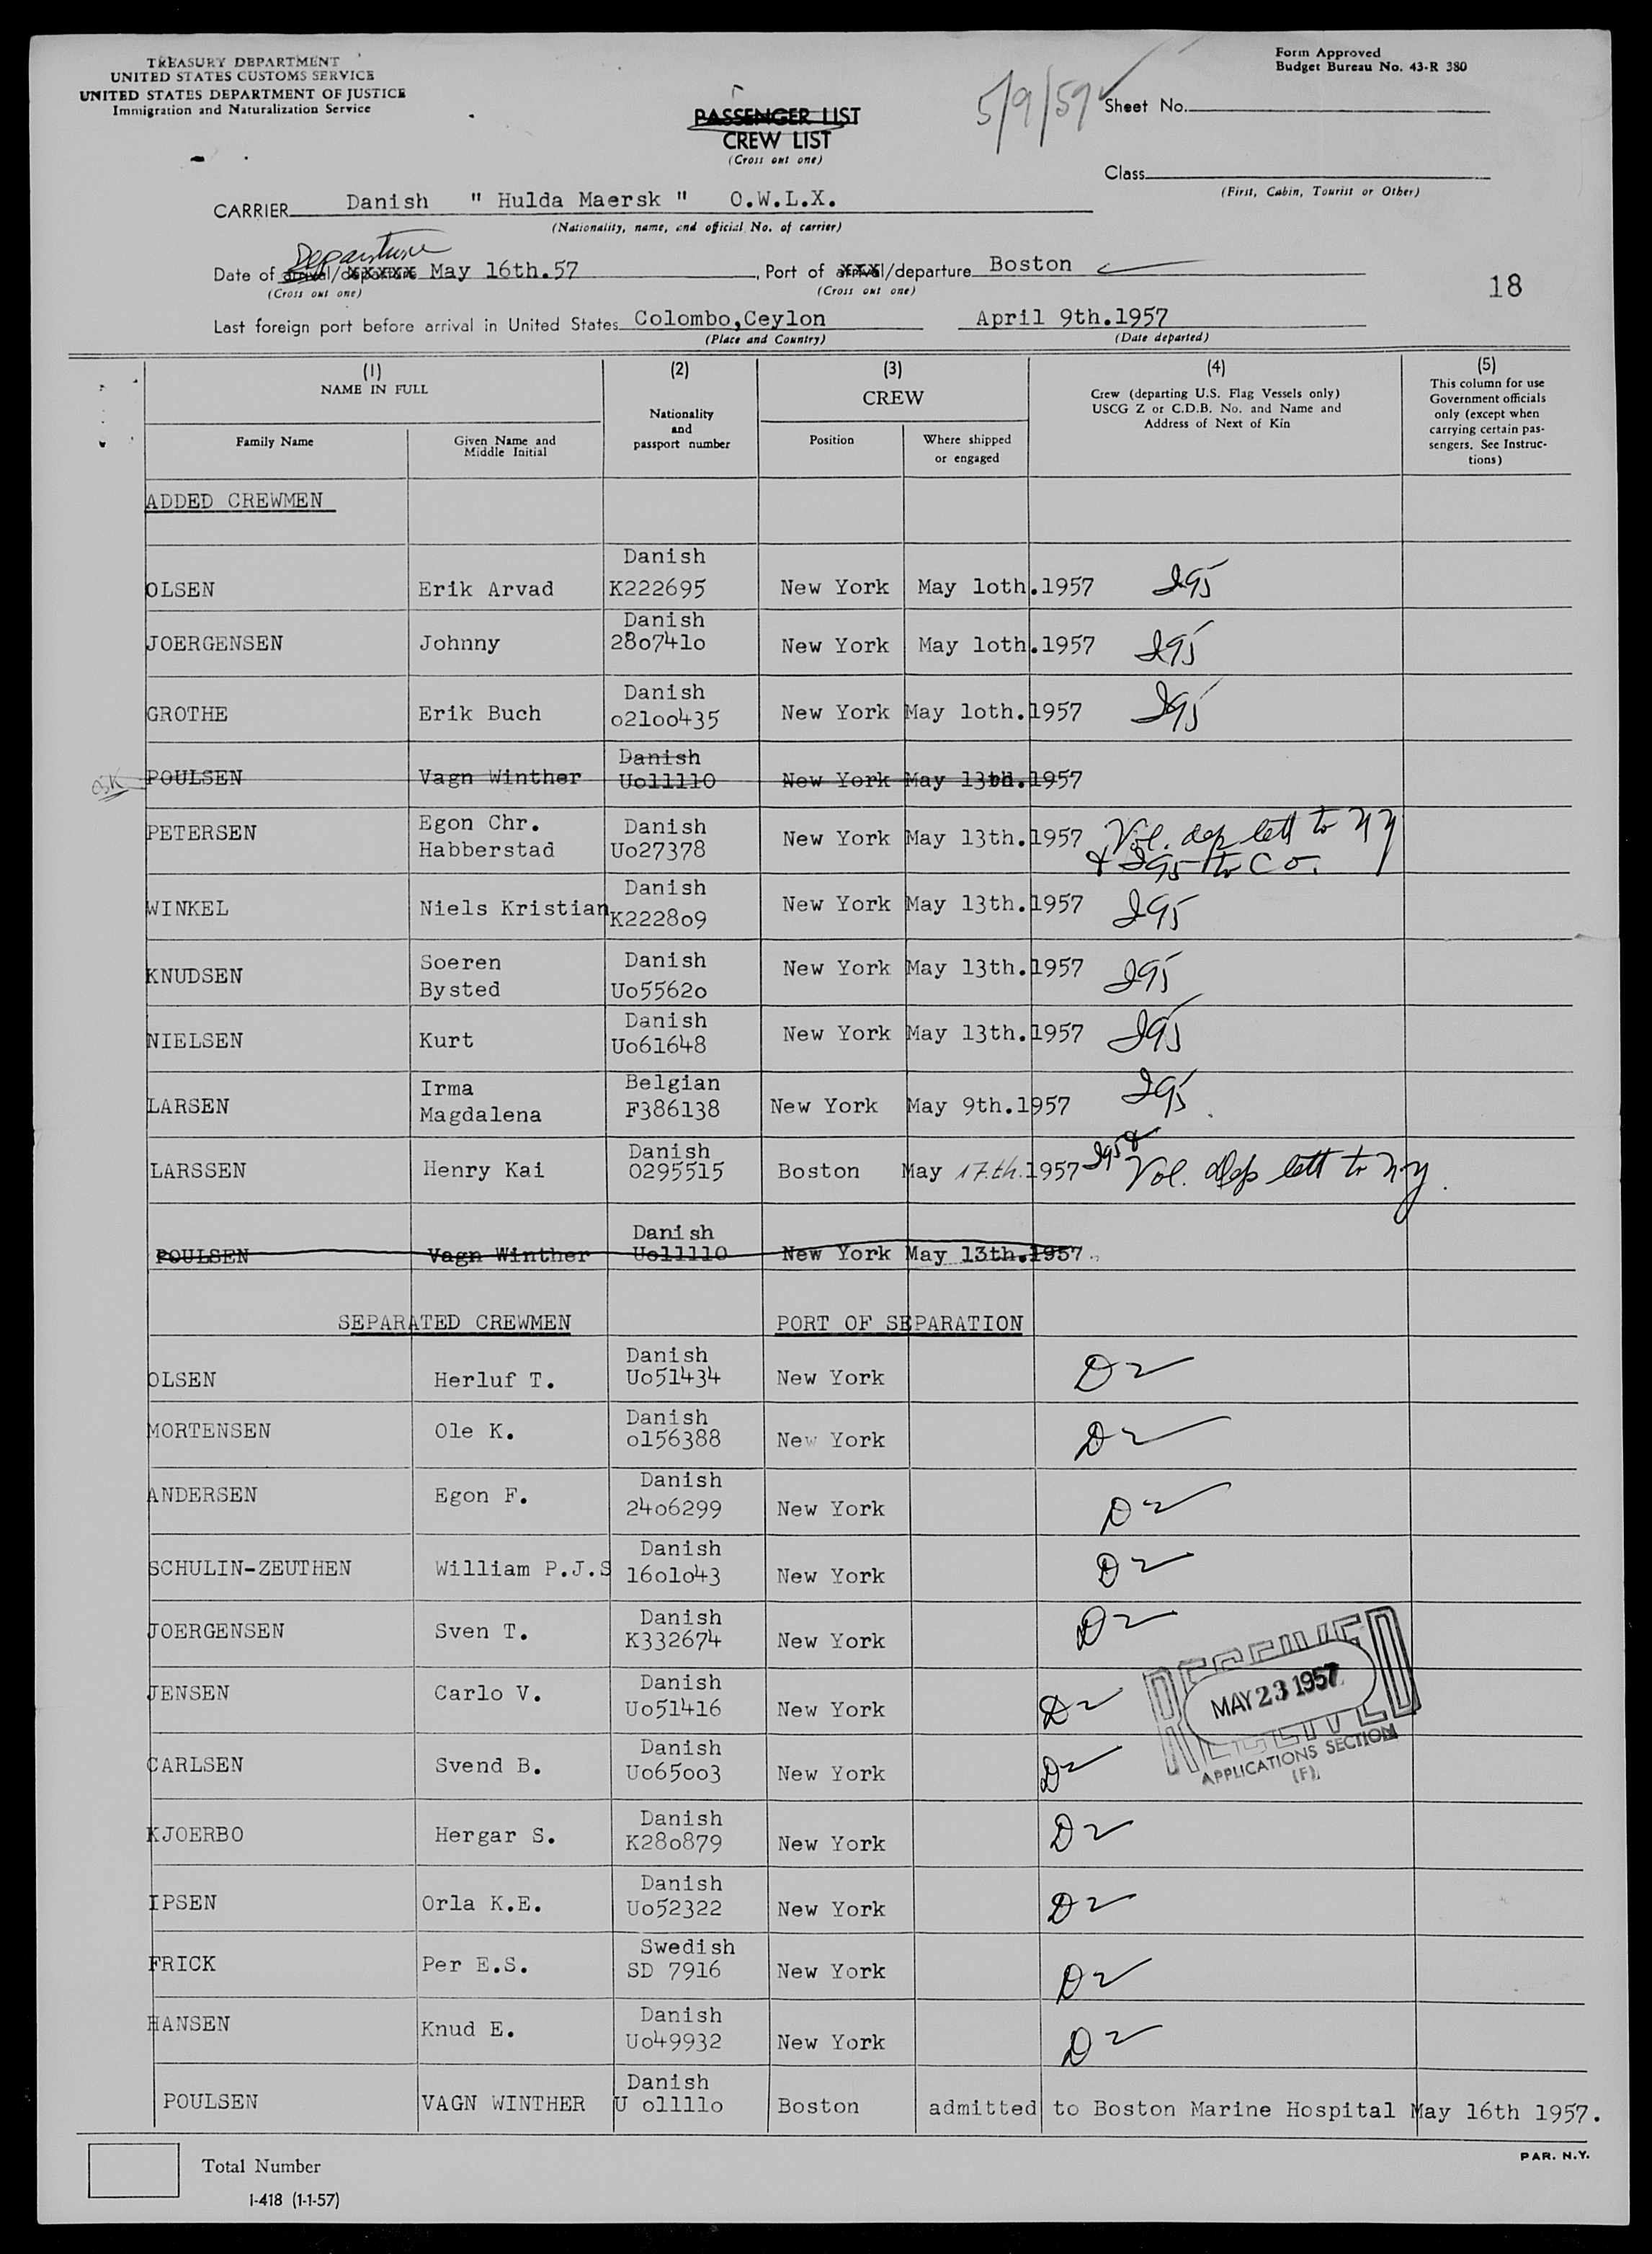 TREASURY DEPARTMENT
UNITED STATES CUSTOMS SERVICE
UNITED STATES DEPARTMENT OF JUSTICE
Immigration and Naturalization Service
Form Approved
Budget Bureau No. 43-R 380
PASSENGER LIST
CREW LIST
(Cross out one)
5/9/57
Sheet No.
Class
(First, Cabin, Tourist or Other)
CARRIER Danish " Hulda Maersk " O.W.L.X.
(Nationality, name, and official No. of carrier)
Departure
Date of arrival/departure May 16th.57, Port of arrival/departure Boston
(Cross out one) (Cross out one)
18
Last foreign port before arrival in United States Colombo,Ceylon April 9th.1957
(Place and Country) (Date departed)
(1) (2) (3) (4) (5)
NAME IN FULL
Family Name
Given Name and
Middle Initial
Nationality
and
passport number
CREW
Position
Where shipped
or engaged
Crew (departing U.S. Flag Vessels only)
USCG Z or C.D.B. No. and Name and
Address of Next of Kin
This column for use
Government officials
only (except when
carrying certain pas-
sengers. See Instruc-
tions)
ADDED CREWMEN
Danish
OLSEN Erik Arvad K222695 New York May 1oth.1957 I95
Danish
JOERGENSEN Johnny 28o741o New York May 1oth.1957 I95
Danish
GROTHE Erik Buch o21oo435 New York May 1oth.1957 I95
Danish
POULSEN Vagn Winther Uo11110 New York May 13th.1957
PETERSEN Egon Chr. Danish New York May 13th.1957 Vol. dep lett to NY
Habberstad Uo27378 & I95 to Co.
Danish
WINKEL Niels Kristian K2228o9 New York May 13th.1957 I95
KNUDSEN Soeren Danish New York May 13th.1957 I95
Bysted Uo5562o
Danish
NIELSEN Kurt Uo61648 New York May 13th.1957 I95
Irma Belgian
LARSEN Magdalena F386138 New York May 9th.1957 I95
Danish
LARSSEN Henry Kai 0295515 Boston May 17.th.1957 I95 & Vol. dep lett to NY.
Danish
POULSEN Vagn Winther Uo11110 New York May 13th.1957
SEPARATED CREWMEN PORT OF SEPARATION
Danish
OLSEN Herluf T. Uo51434 New York D2
Danish
MORTENSEN Ole K. o156388 New York D2
Danish
ANDERSEN Egon F. 24o6299 New York D2
Danish
SCHULIN-ZEUTHEN William P.J.S 16o1o43 New York D2
Danish
JOERGENSEN Sven T. K332674 New York D2
Danish
JENSEN Carlo V. Uo51416 New York D2
RECEIVED
MAY 23 1957
APPLICATIONS SECTION
(F)
Danish
CARLSEN Svend B. Uo65oo3 New York D2
Danish
KJOERBO Hergar S. K28o879 New York D2
Danish
IPSEN Orla K.E. Uo52322 New York D2
Swedish
FRICK Per E.S. SD 7916 New York D2
Danish
HANSEN Knud E. Uo49932 New York D2
Danish
POULSEN VAGN WINTHER U o1111o Boston admitted to Boston Marine Hospital May 16th 1957.
Total Number
I-418 (1-1-57)
PAR. N.Y.